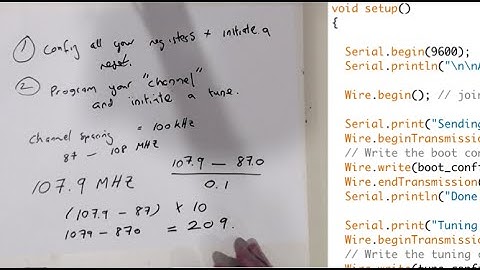 ① Config all your registers + initiate a
reset.
② Program your "channel"
and initiate a tune.
channel spacing = 100 kHz
87 – 108 MHz
107.9 MHz
107.9 – 87.0
0.1
(107.9 – 87) x 10
1079 – 870 = 209.
void setup()
{
Serial.begin(9600);
Serial.println("\n\nA
Wire.begin(); // join
Serial.print("Sending
Wire.beginTransmission
// Write the boot con
Wire.write(boot_conf
Wire.endTransmission(
Serial.println("Done
Serial.print("Tuning
Wire.beginTransmission
// Write the tuning c
Wire.write(tune_conf